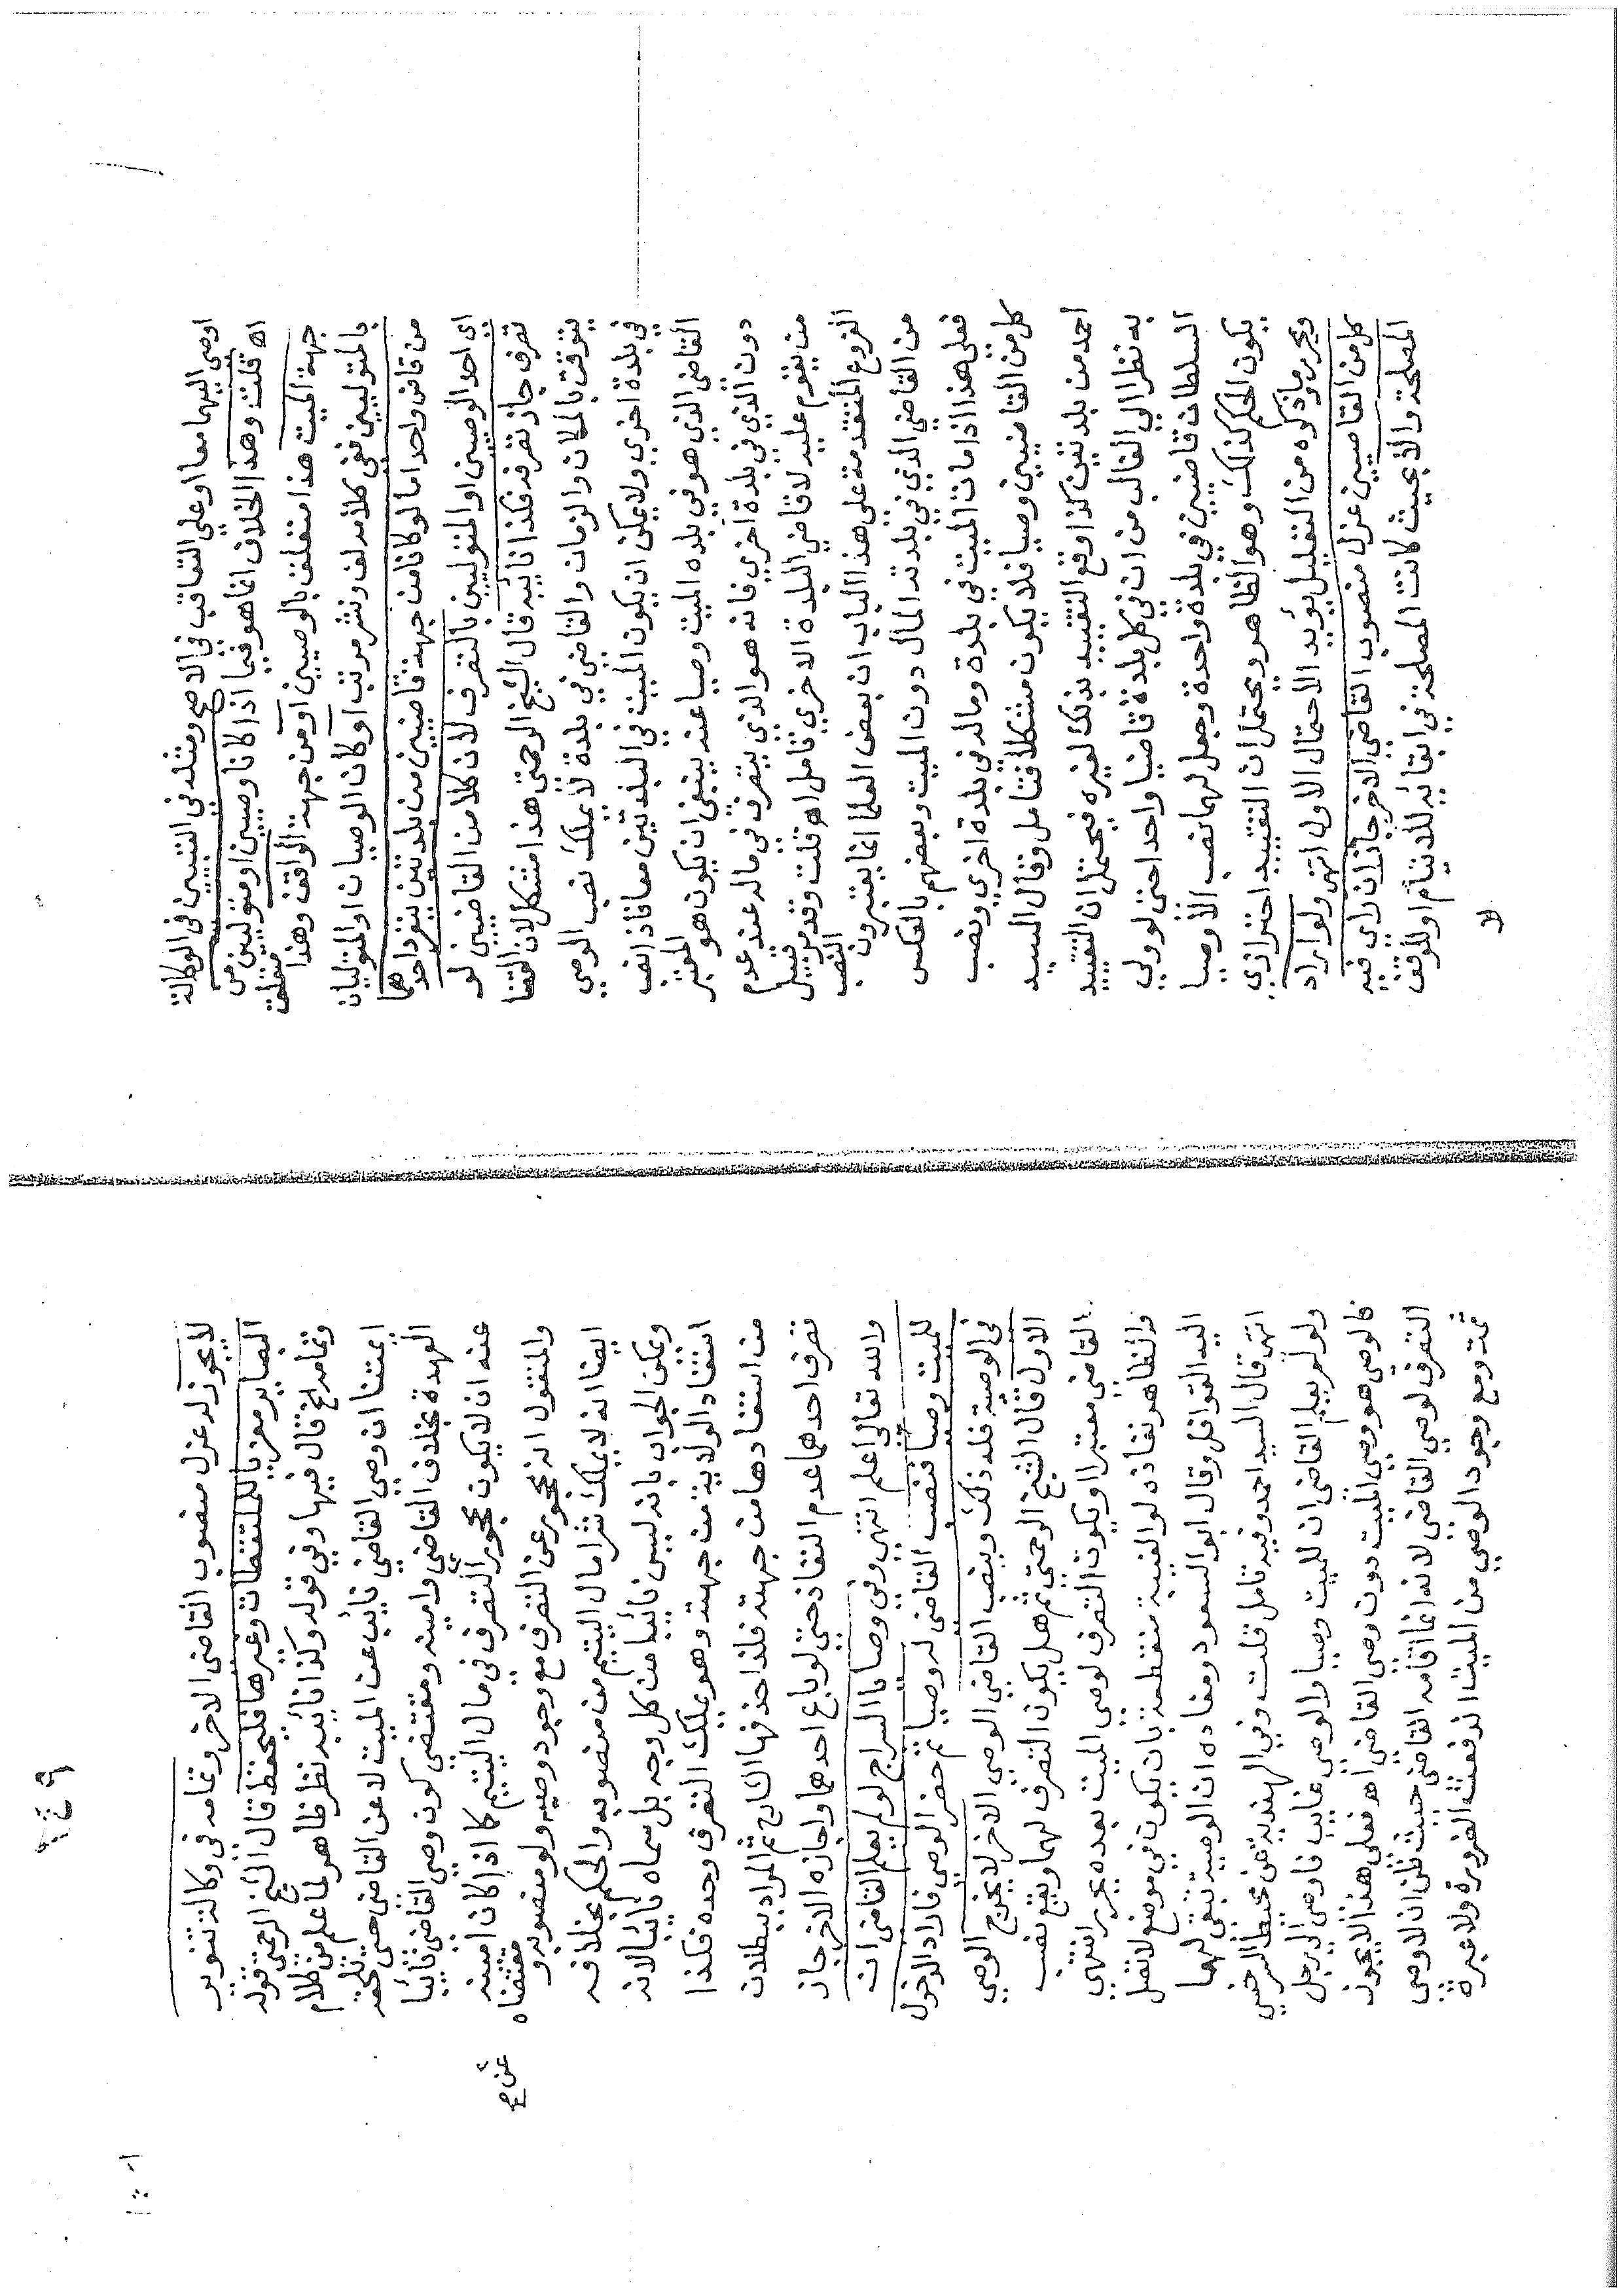 اوصى اليهما معا او على التعاقب فى الاصح ومثله فى التبيين فى الوكالة
اه قلت وهذا الخلاف انما هو فيما اذا كانا وصيين او متوليين من
جهة الميت هذا متعلق بالوصيين او من جهة الواقف وهذا متعلق
بالمتوليين ففى كلامه لف ونشر مرتب او كان الوصيان او المتوليان
من قاض واحد اما لو كانا من جهة قاضيين من بلدتين ينفرد احدهما
اى احد الوصيين او المتوليين بالتصرف لان كلا من القاضيين لو
تصرف جاز تصرفه فكذا نائبه قال الشيخ الرحمتى هذا مشكل لان القضا
يتوقت بالمكان والزمان والقاضى فى بلدة لا يملك نصب الوصى
فى بلدة اخرى ولا يمكن ان يكون الميت فى البلدتين معا فاذا نصب
القاضى الذى هو فى بلده الميت وصيا عنه ينبغى ان يكون هو المعتبر
دون الذى فى بلدة اخرى فانه هو الذى يتصرف فى ماله عند عدم
من يقوم عليه لا قاضى البلدة الاخرى تامل اه قلت وقد مر قبيل
الفروع المتقدمة على هذا الباب ان بعض العلما انما يعتبرون النصب
من القاضى الذى فى بلدته المال دون الميت وبعضهم بالعكس
فعلى هذا اذا مات الميت فى بلدة وماله فى بلدة اخرى ونصب
كل من القاضيين وصيا فلا يكون مشكلا فتامل وقال السيد
احمد من بلدتين كذا وقع التقييد بذلك لغيره فيحتمل ان التقييد
به نظرا الى الغالب من ان فى كل بلدة قاضيا واحدا حتى لو ولى
السلطان قاضيين فى بلدة واحدة وجعل لهما نصب الاوصيا
يكون الحكم كذلك وهو الظاهر ويحتمل ان التقييد احترازى
ويحرر ما ذكره من التعليل يؤيد الاحتمال الاول انتهى ولو اراد
كل من القاضيين عزل منصوب القاضى الاخر جاز ان راى فيه
المصلحة والا بحيث كانت المصلحة فى ابقايه لليتام او للوقف
لا
لا يجوز له عزل منصوب القاضى الاخر وتمامه فى وكالة تنوير
البصاير معزيا للملتقطات وغيرها فليحفظ قال الشيخ الرحمتى قوله
وتمامه الخ قال فيها وفى قوله وكذا نائبه نظر ظاهر لما علم من كلام
ايمتنا ان وصى القاضى نايب عن الميت لا عن القاضى حتى تلحقه
العهدة بخلاف القاضى وامينه ومقتضى كون وصى القاضى نائبا
عنه ان لا يكون محجور التصرف فى مال اليتيم كما اذا كان امينه
والمنقول انه محجور عن التصرف مع وجود وصيه ولو منصوبه و مقتضاه
ايضا انه لا يملك شرا مال اليتيم من منصوبه والحكم بخلافه
ويمكن الجواب بانه ليس نائبا من كل وجه بل سماه نائبا لانه
استفاد الولاية من جهته وهو يملك التصرف وحده فكذا
من استفادها من جهته فلذا حذفها الشارح ثم المراد ببطلان
تصرف احدهما عدم النفاذ حتى لو باع احدهما واجازه الاخر جاز
والله تعالى اعلم انتهى وفى وصايا السراج لو لم يعلم القاضى ان
للميت وصيا فنصب القاضى له وصيا ثم حضر الوصى فاراد الدخول
فى الوصية فله ذلك ونصب القاضى الوصى الاخر لا يخرج الوصى
الاول قال الشيخ الرحمتى ثم هل يكون التصرف لهما ويقع نصب
القاضى معتبرا او يكون التصرف لوصى الميت بعده يحرر انتهى
والظاهر نفاذه لو الغيبة منقطعة بان يكون فى موضع لا تصل
اليه القوافل وقال ابو السعود ومفاده ان الوصية تبقى لهما
انتهى قال السيد احمد وفيه تامل قلت وفى الهندية عن محيط السرخسى
ولو لم يعلم القاضى ان للميت وصيا والوصى غايب فاوصى الى رجل
فالوصى هو وصى الميت دون وصى القاضى اه فعلى هذا لا يجوز
التصرف لوصى القاضى لانه انما اقامه القاضى حيث ظن ان لا وصى
ثمت ومع وجود الوصى من الميت اندفعت الضرورة ولا عبرة